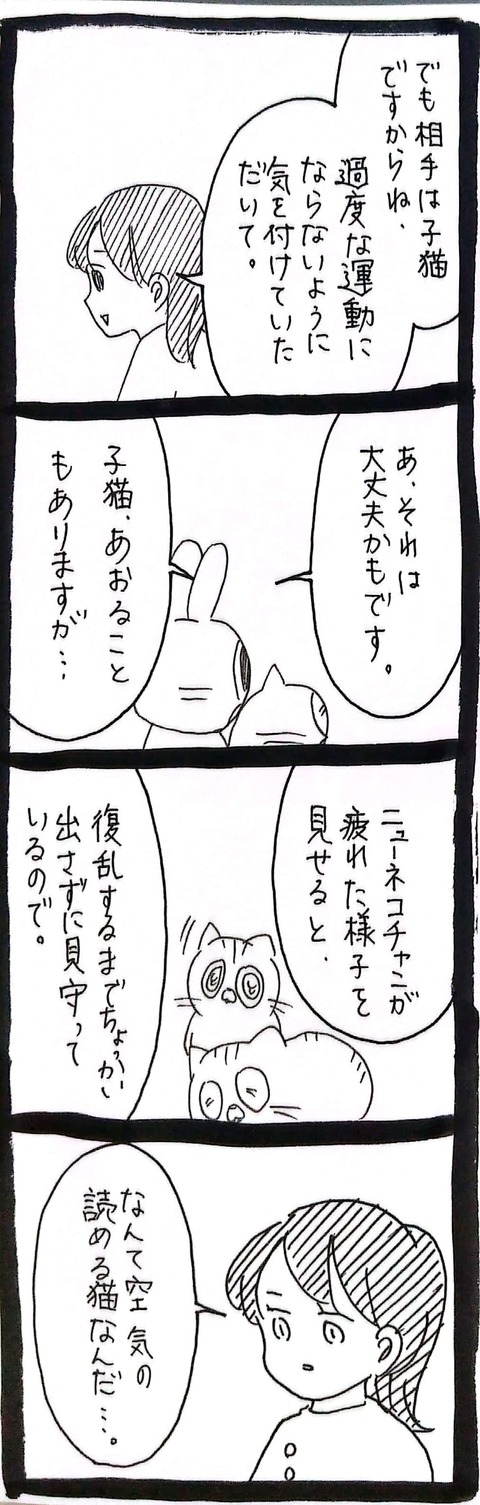 でも相手は子猫
ですからね、
過度な運動に
ならないように
気を付けていた
だいて。
あ、それは
大丈夫かもです。
子猫、あおること
もありますが…
ニューネコチャンが
疲れた様子を
見せると、
復乱するまでちょっかい
出さずに見守って
いるので。
なんて空気の
読める猫なんだ…。